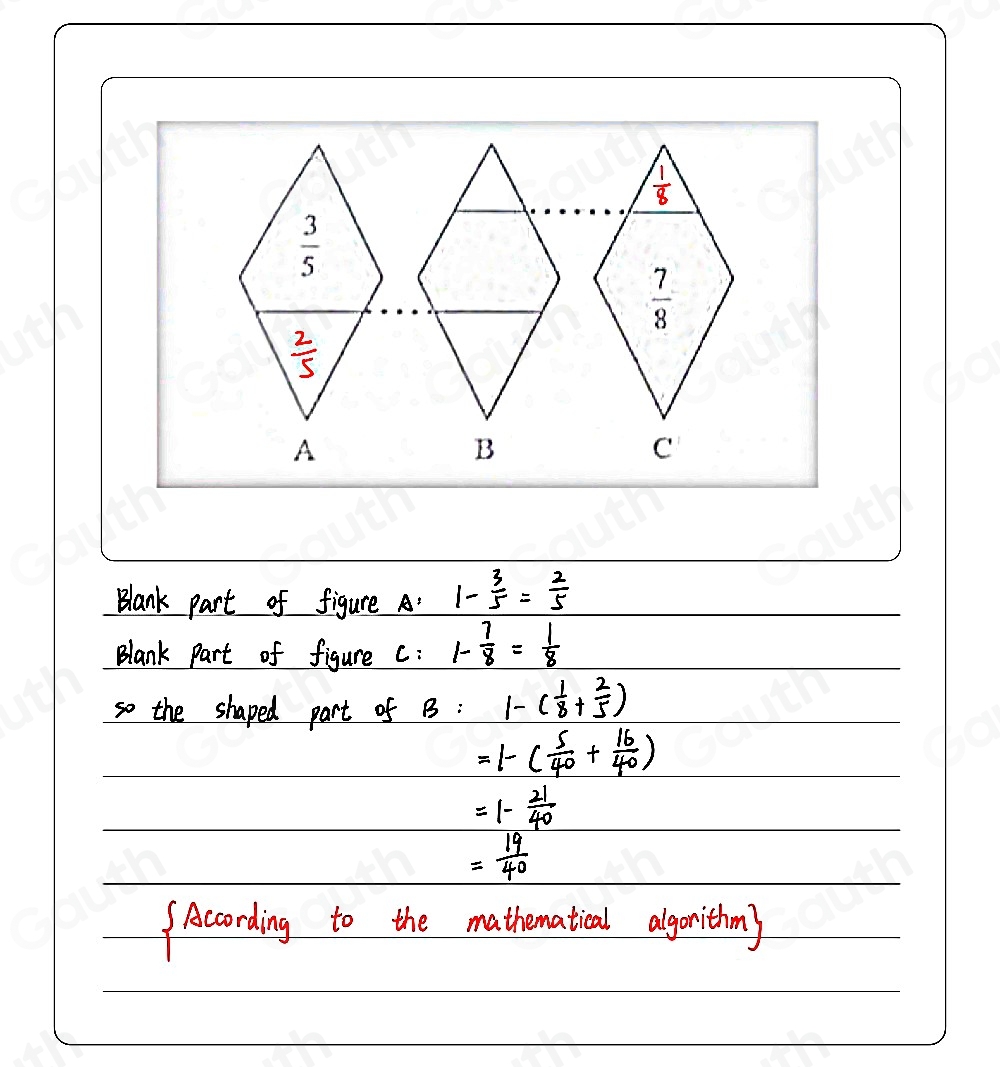 3/5
1/8
7/8
2/5
A B C
Blank part of figure A: 1 - 3/5 = 2/5
Blank part of figure C: 1 - 7/8 = 1/8
so the shaped part of B: 1 - (1/8 + 2/5)
= 1 - (5/40 + 16/40)
= 1 - 21/40
= 19/40
{According to the mathematical algorithm}
Gauth